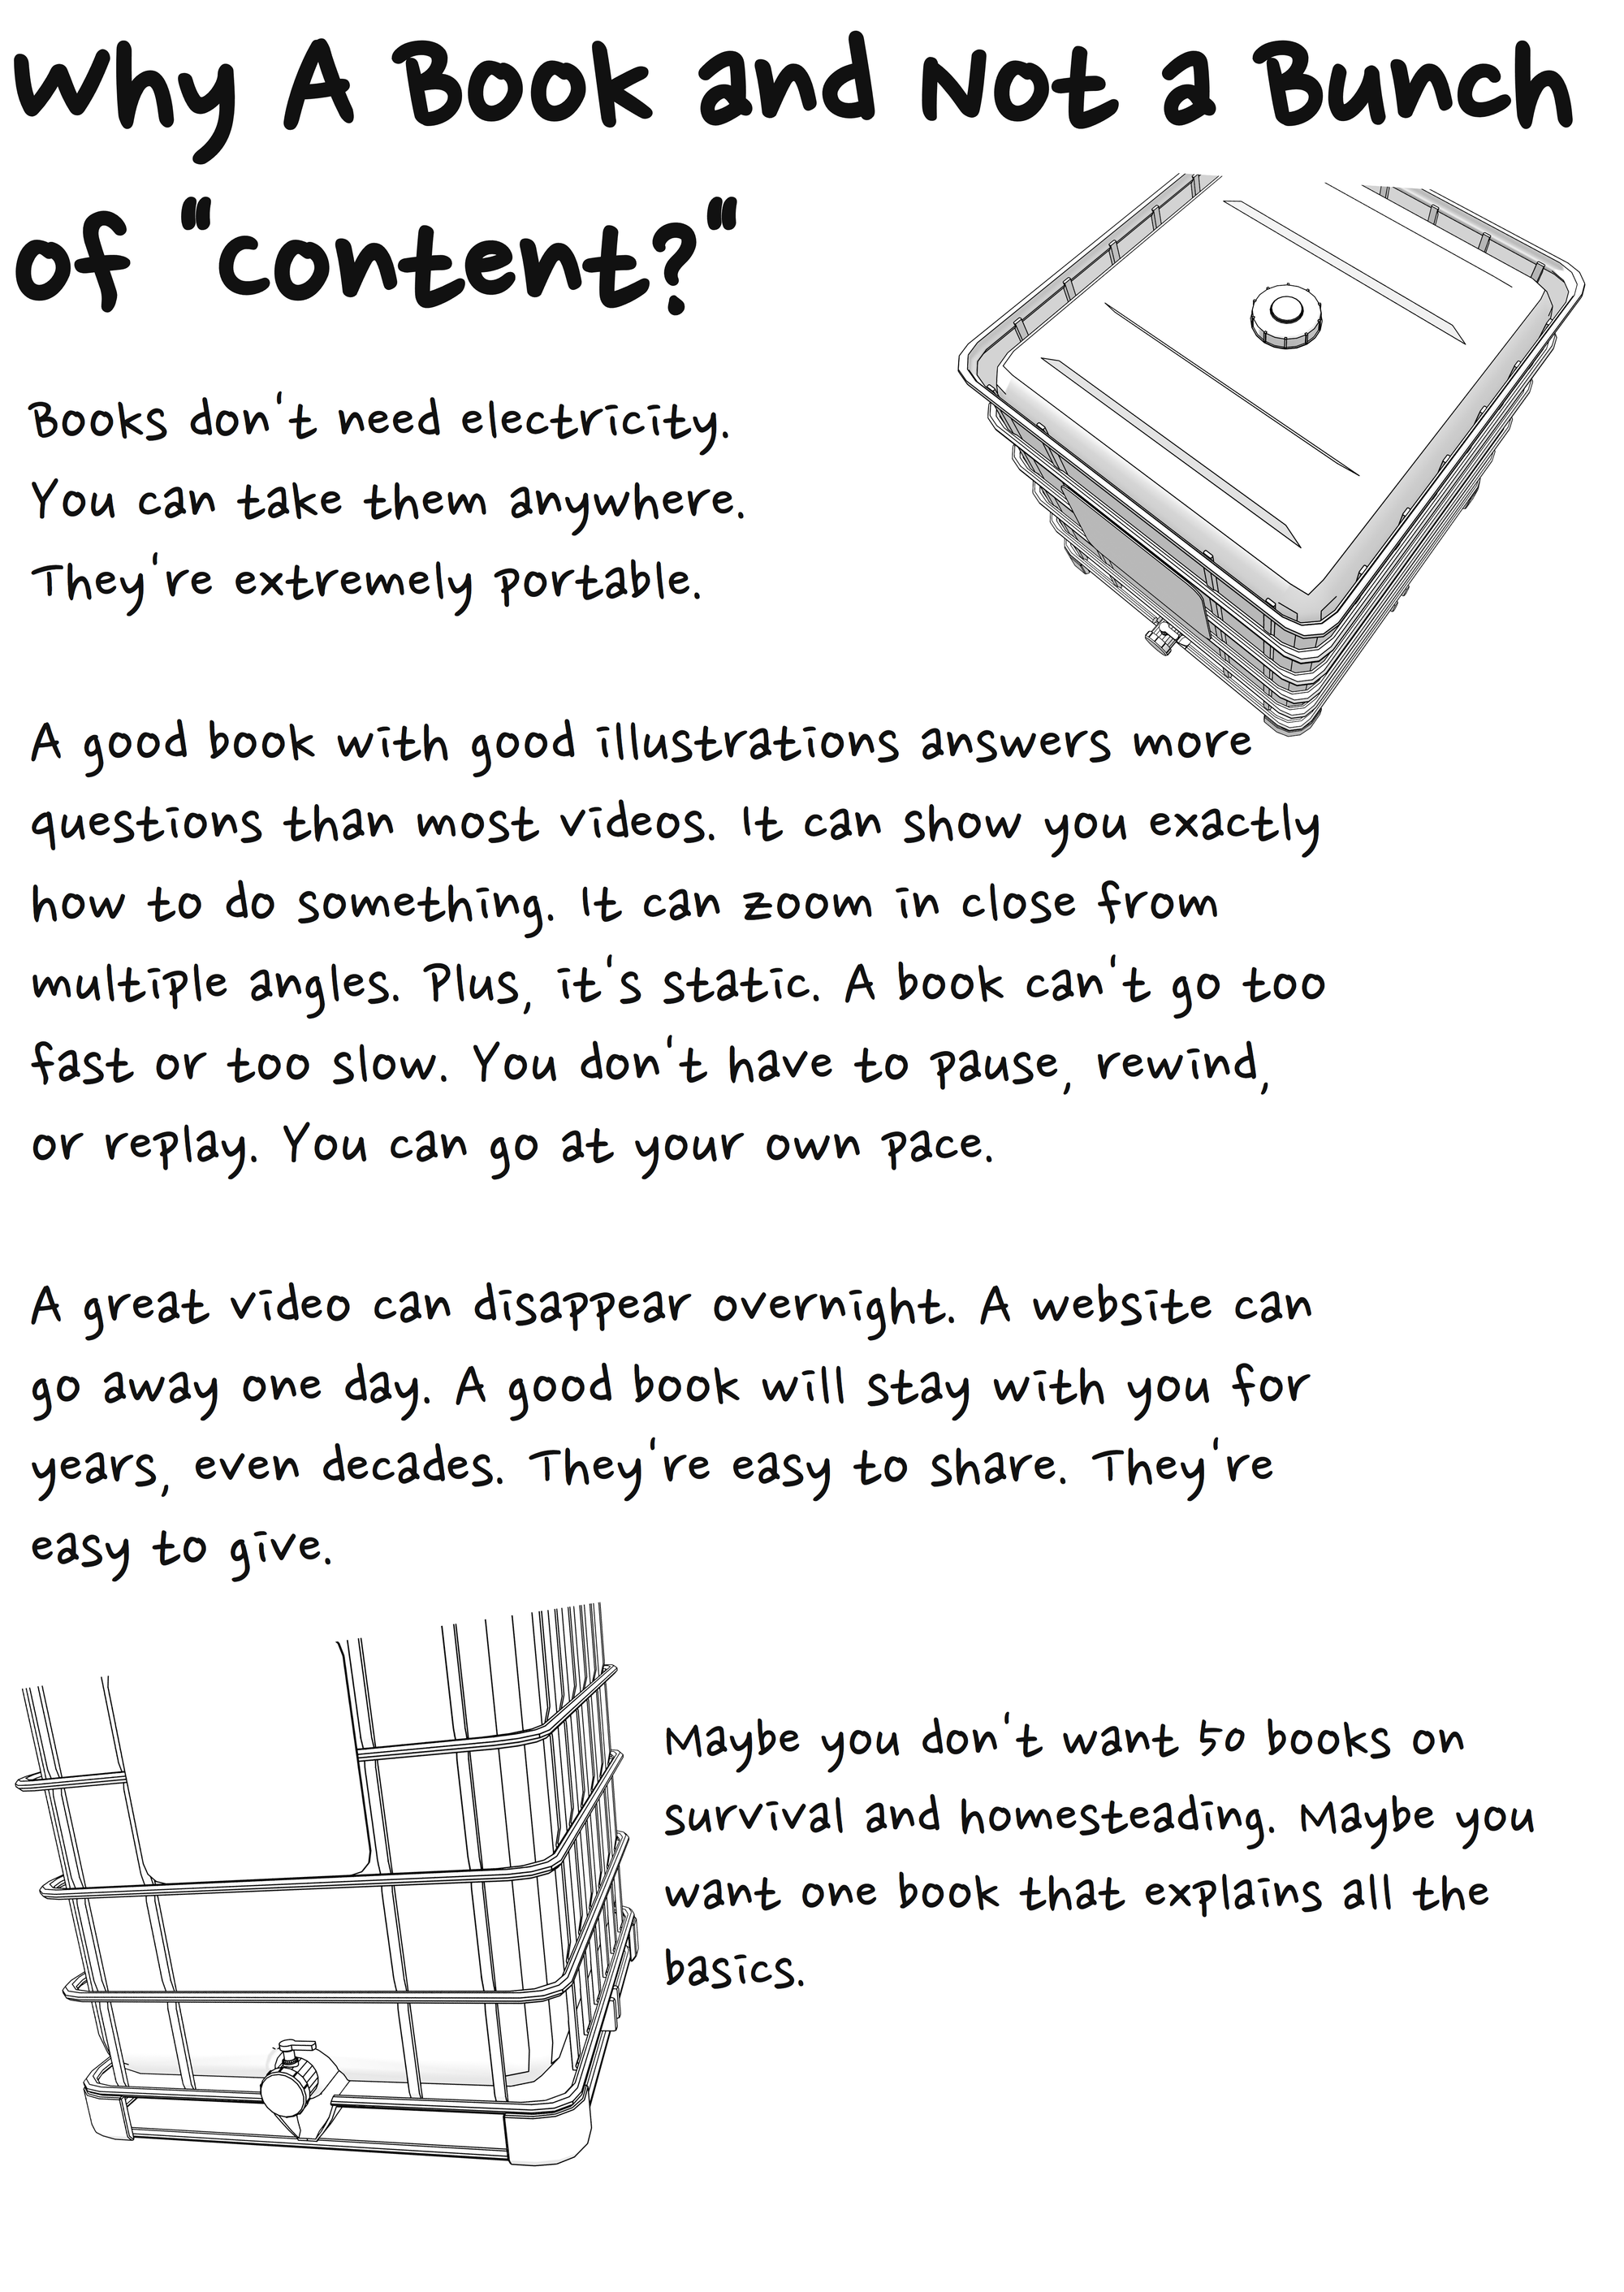 Why A Book and Not a Bunch
of "content?"
Books don't need electricity.
You can take them anywhere.
They're extremely portable.
A good book with good illustrations answers more
questions than most videos. It can show you exactly
how to do something. It can zoom in close from
multiple angles. Plus, it's static. A book can't go too
fast or too slow. You don't have to pause, rewind,
or replay. You can go at your own pace.
A great video can disappear overnight. A website can
go away one day. A good book will stay with you for
years, even decades. They're easy to share. They're
easy to give.
Maybe you don't want 50 books on
survival and homesteading. Maybe you
want one book that explains all the
basics.